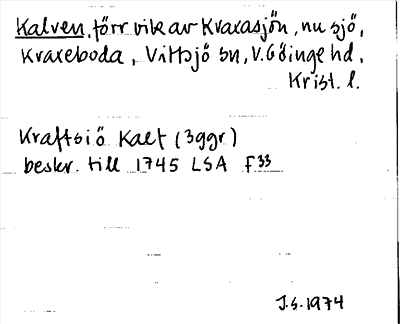 Kalven, förr vik av Kraxasjön, nu sjö,
Kraxeboda, Vittsjö sn, V. Göinge hd,
Krist. l.
Kraftsiö Kalf (3ggr)
beskr. till 1745 LSA F33
J.S. 1974